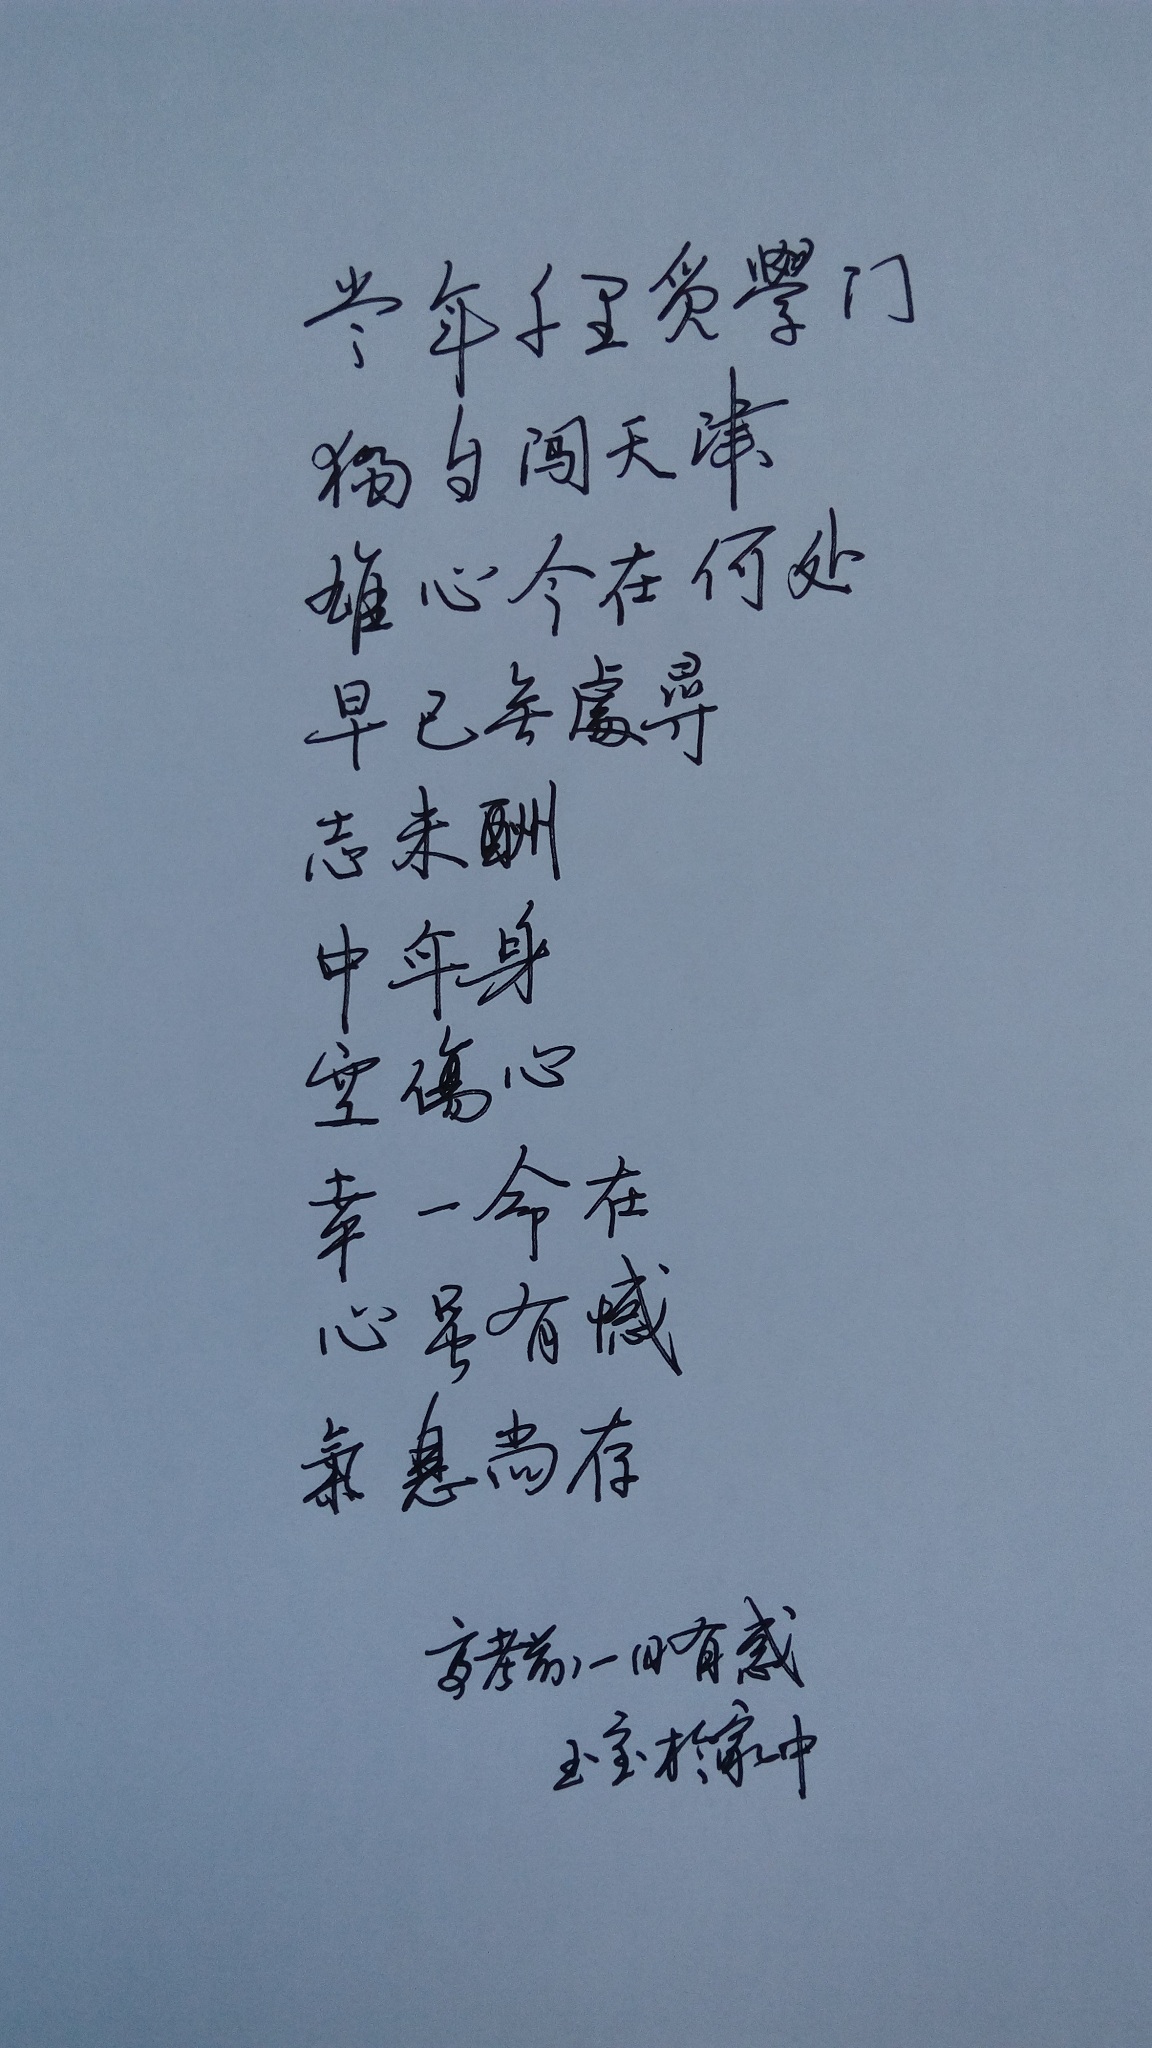 当年千里觅學门
獨自闯天津
雄心今在何处
早已无處尋
志未酬
中年身
空傷心
幸一命在
心虽有憾
氣息尚存
高考前一日有感
玉宝於家中